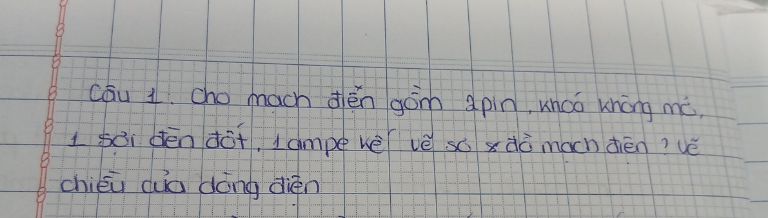 Câu 1: Cho mạch điện gồm 2 pin, khoá không mở,
1 sợi đèn đốt, 1 ampe kế vẽ sơ đồ mạch điện? vẽ
chiều của dòng điện